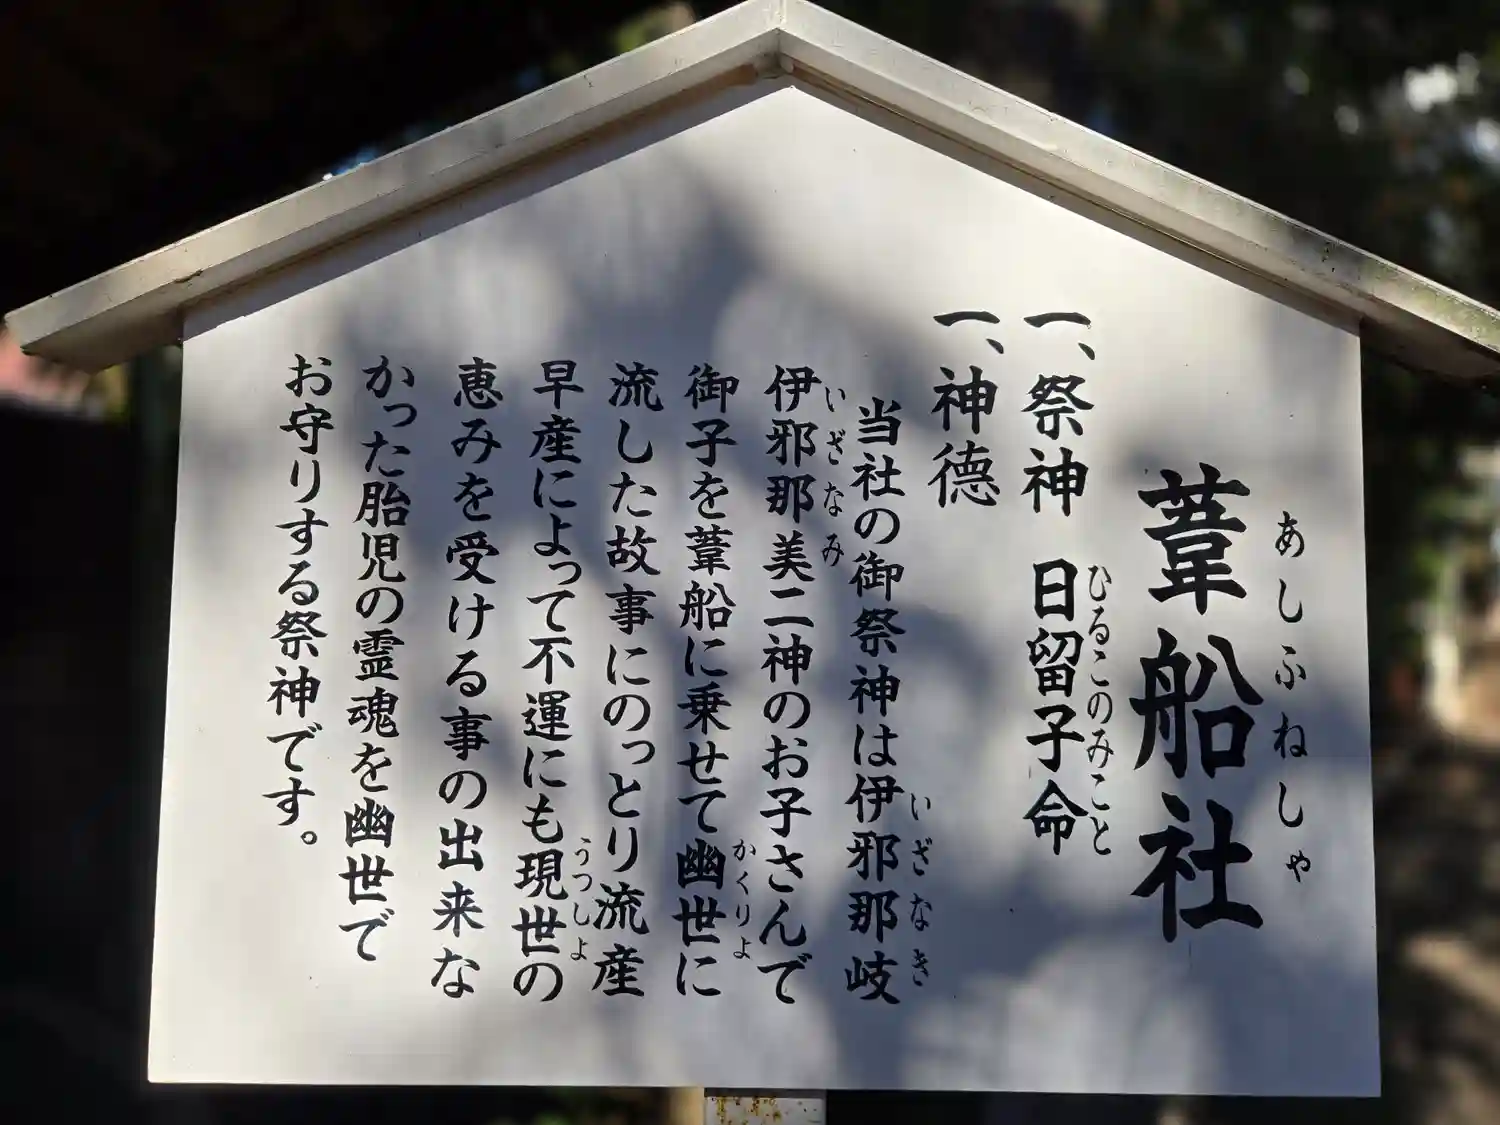 あしふねしゃ
葦船社
ひるこのみこと
一、祭神 日留子命
一、神徳
いざなき
当社の御祭神は伊邪那岐
いざなみ
伊邪那美二神のお子さんで
御子を葦船に乗せて幽世に
かくりよ
流した故事にのっとり流産
早産によって不運にも現世の
うつしよ
恵みを受ける事の出来な
かった胎児の霊魂を幽世で
お守りする祭神です。